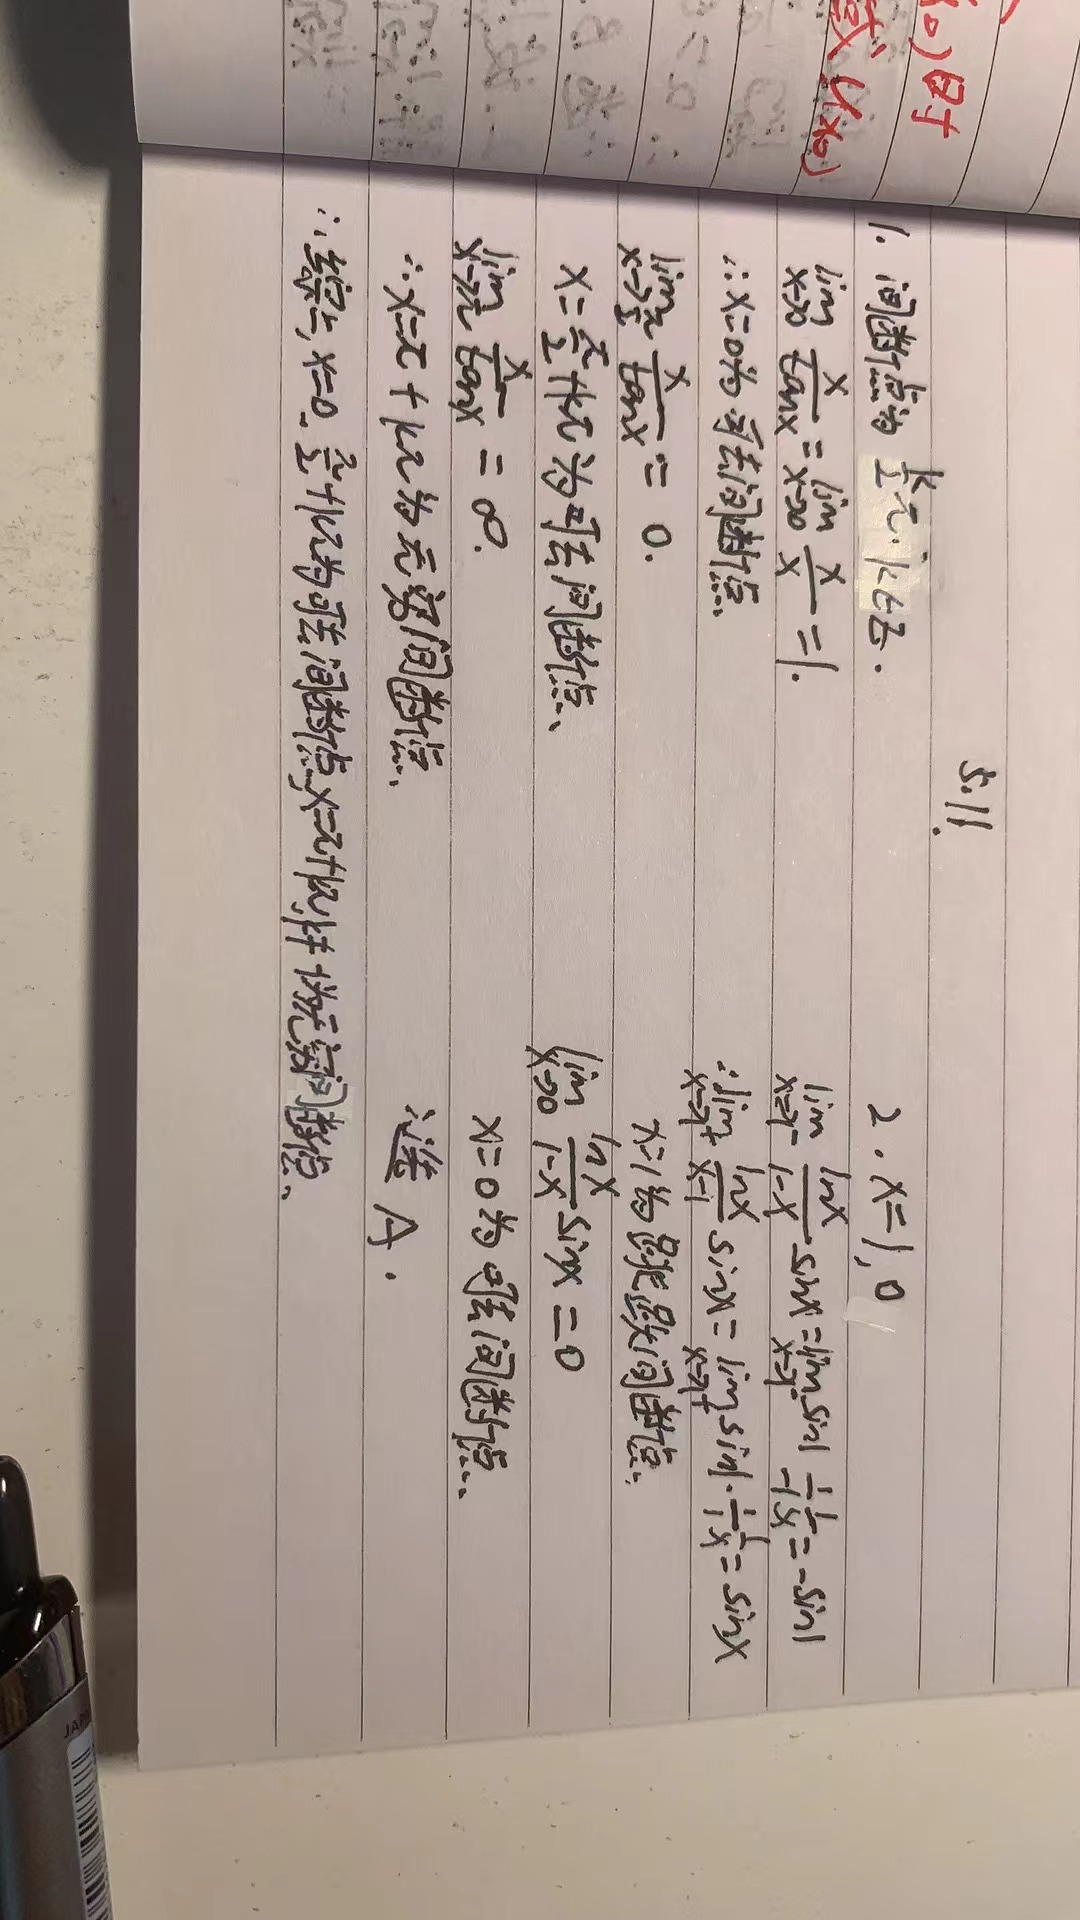 x₀)时
域U(x₀)
5.11.
1. 间断点为 k/2 π. k∈Z.
lim x→0 x/tanx = lim x→0 x/x = 1.
∴x=0为可去间断点
lim x→π/2 x/tanx = 0.
x=π/2+kπ为可去间断点
lim x→π x/tanx = ∞.
∴x=π+kπ为无穷间断点.
∴综上, x=0. π/2+kπ为可去间断点,x=π+kπ,k≠-1为无穷间断点.
2. x=1, 0
lim x→1⁻ lnx/1-x sinx = lim x→1⁻ sin1 1/x/-1 = -sin1
∴lim x→1⁺ lnx/x-1 sinx = lim x→1⁺ sin1·1/x/1 = sinx
x=1为跳跃间断点.
lim x→0 lnx/1-x sinx = 0
x=0为可去间断点.
∴选A.
JAPA